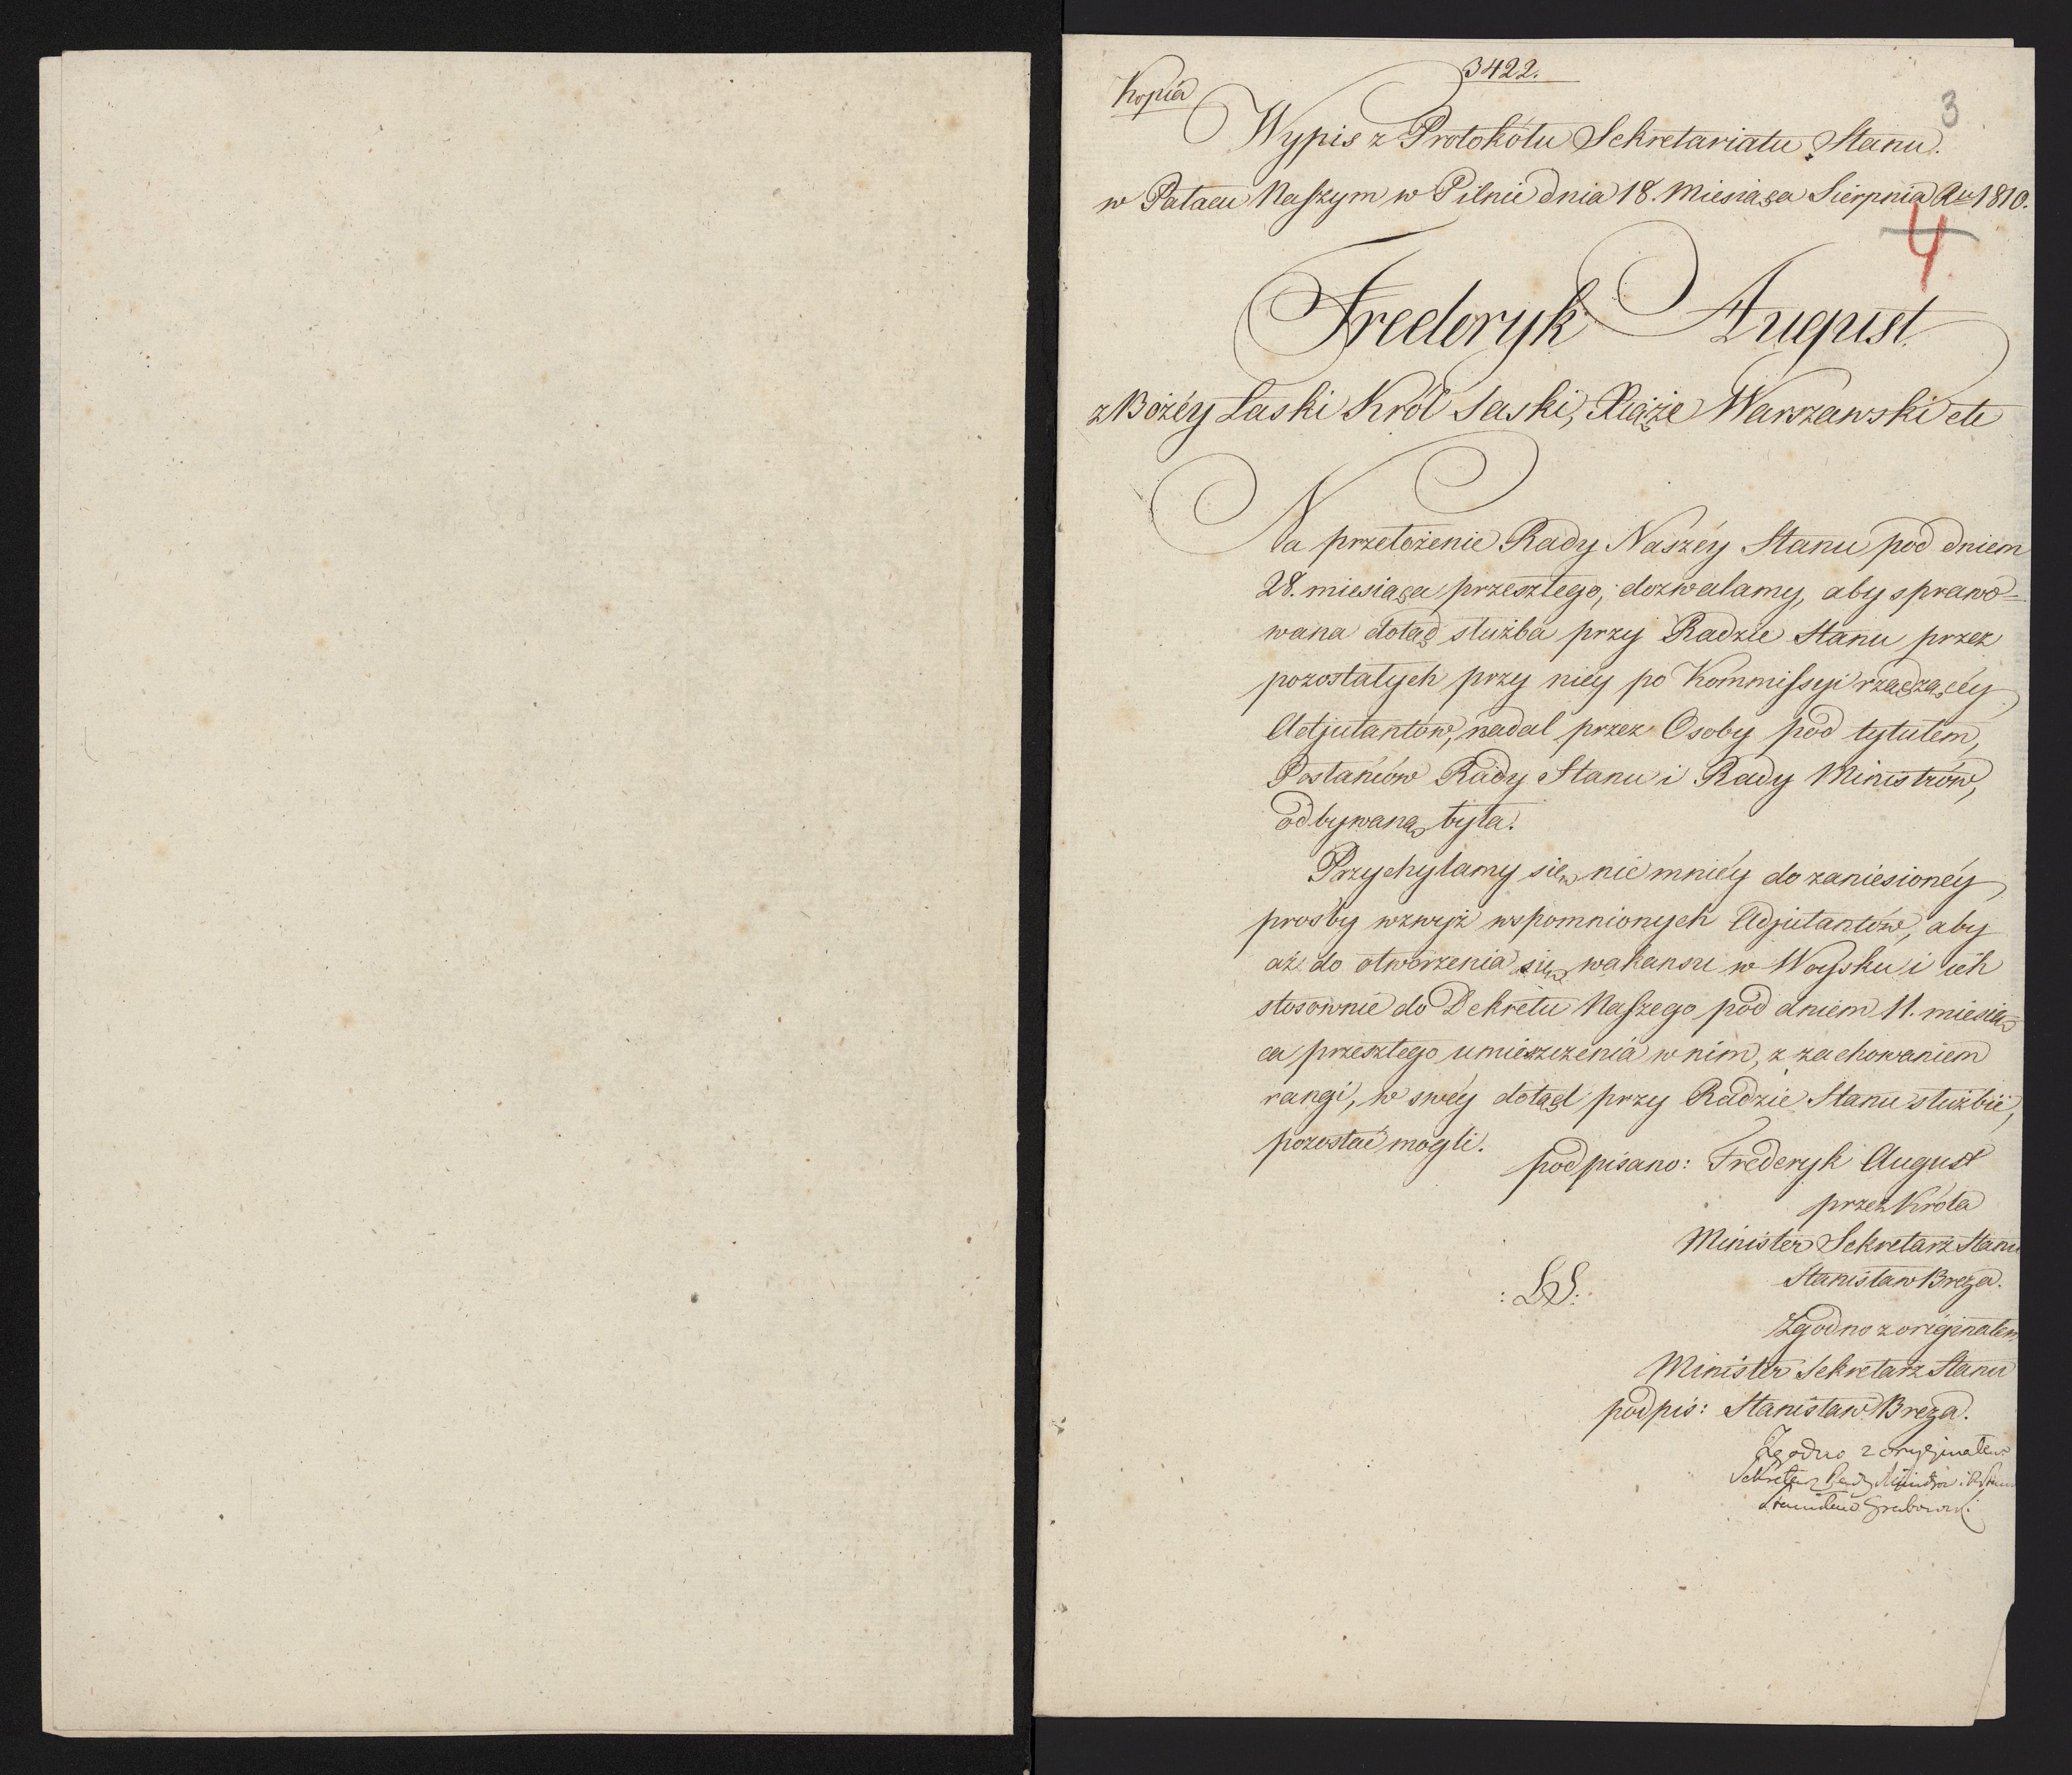 3422.
Kopia
3
Wypis z Protokółu Sekretariatu Stanu.
w Pałacu Naszym w Pilnie dnia 18. Miesiąca Sierpnia Rku 1810.
4
Frederyk August
z Bożéy Łaski Król Saski, Xiąże Warszawski etc
Na przełożenie Rady Naszéy Stanu pod dniem
28. miesiąca przeszłego, dozwalamy, aby sprawo=
wana dotąd służba przy Radzie Stanu przez
pozostałych przy niéy po Kommissyi rządzącéy
Adjutantów, nadal przez Osoby pod tytułem,
Posłańców Rady Stanu i Rady Ministrów,
odbywaną była.
Przychylamy się niemniéy do zaniesionéy
prośby wzwyż wspomnionych Adjutantów, aby
aż do otworzenia się wakansu w Woysku i ich
stosownie do Dekretu Naszego pod dniem 11. miesią=
ca przeszłego umieszczenia w nim, z zachowaniem
rangi, w swéy dotąd przy Radzie Stanu służbie,
pozostać mogli.
podpisano: Frederyk August
przez Króla
Minister Sekretarz Stanu
Stanisław Breza.
:LS:
Zgodno z originałem
Minister Sekretarz Stanu
podpis: Stanisław Breza.
Zgodno z oryginałem
Sekretarz Rady Ministrów i R. Stanu
Stanisław Grabowski